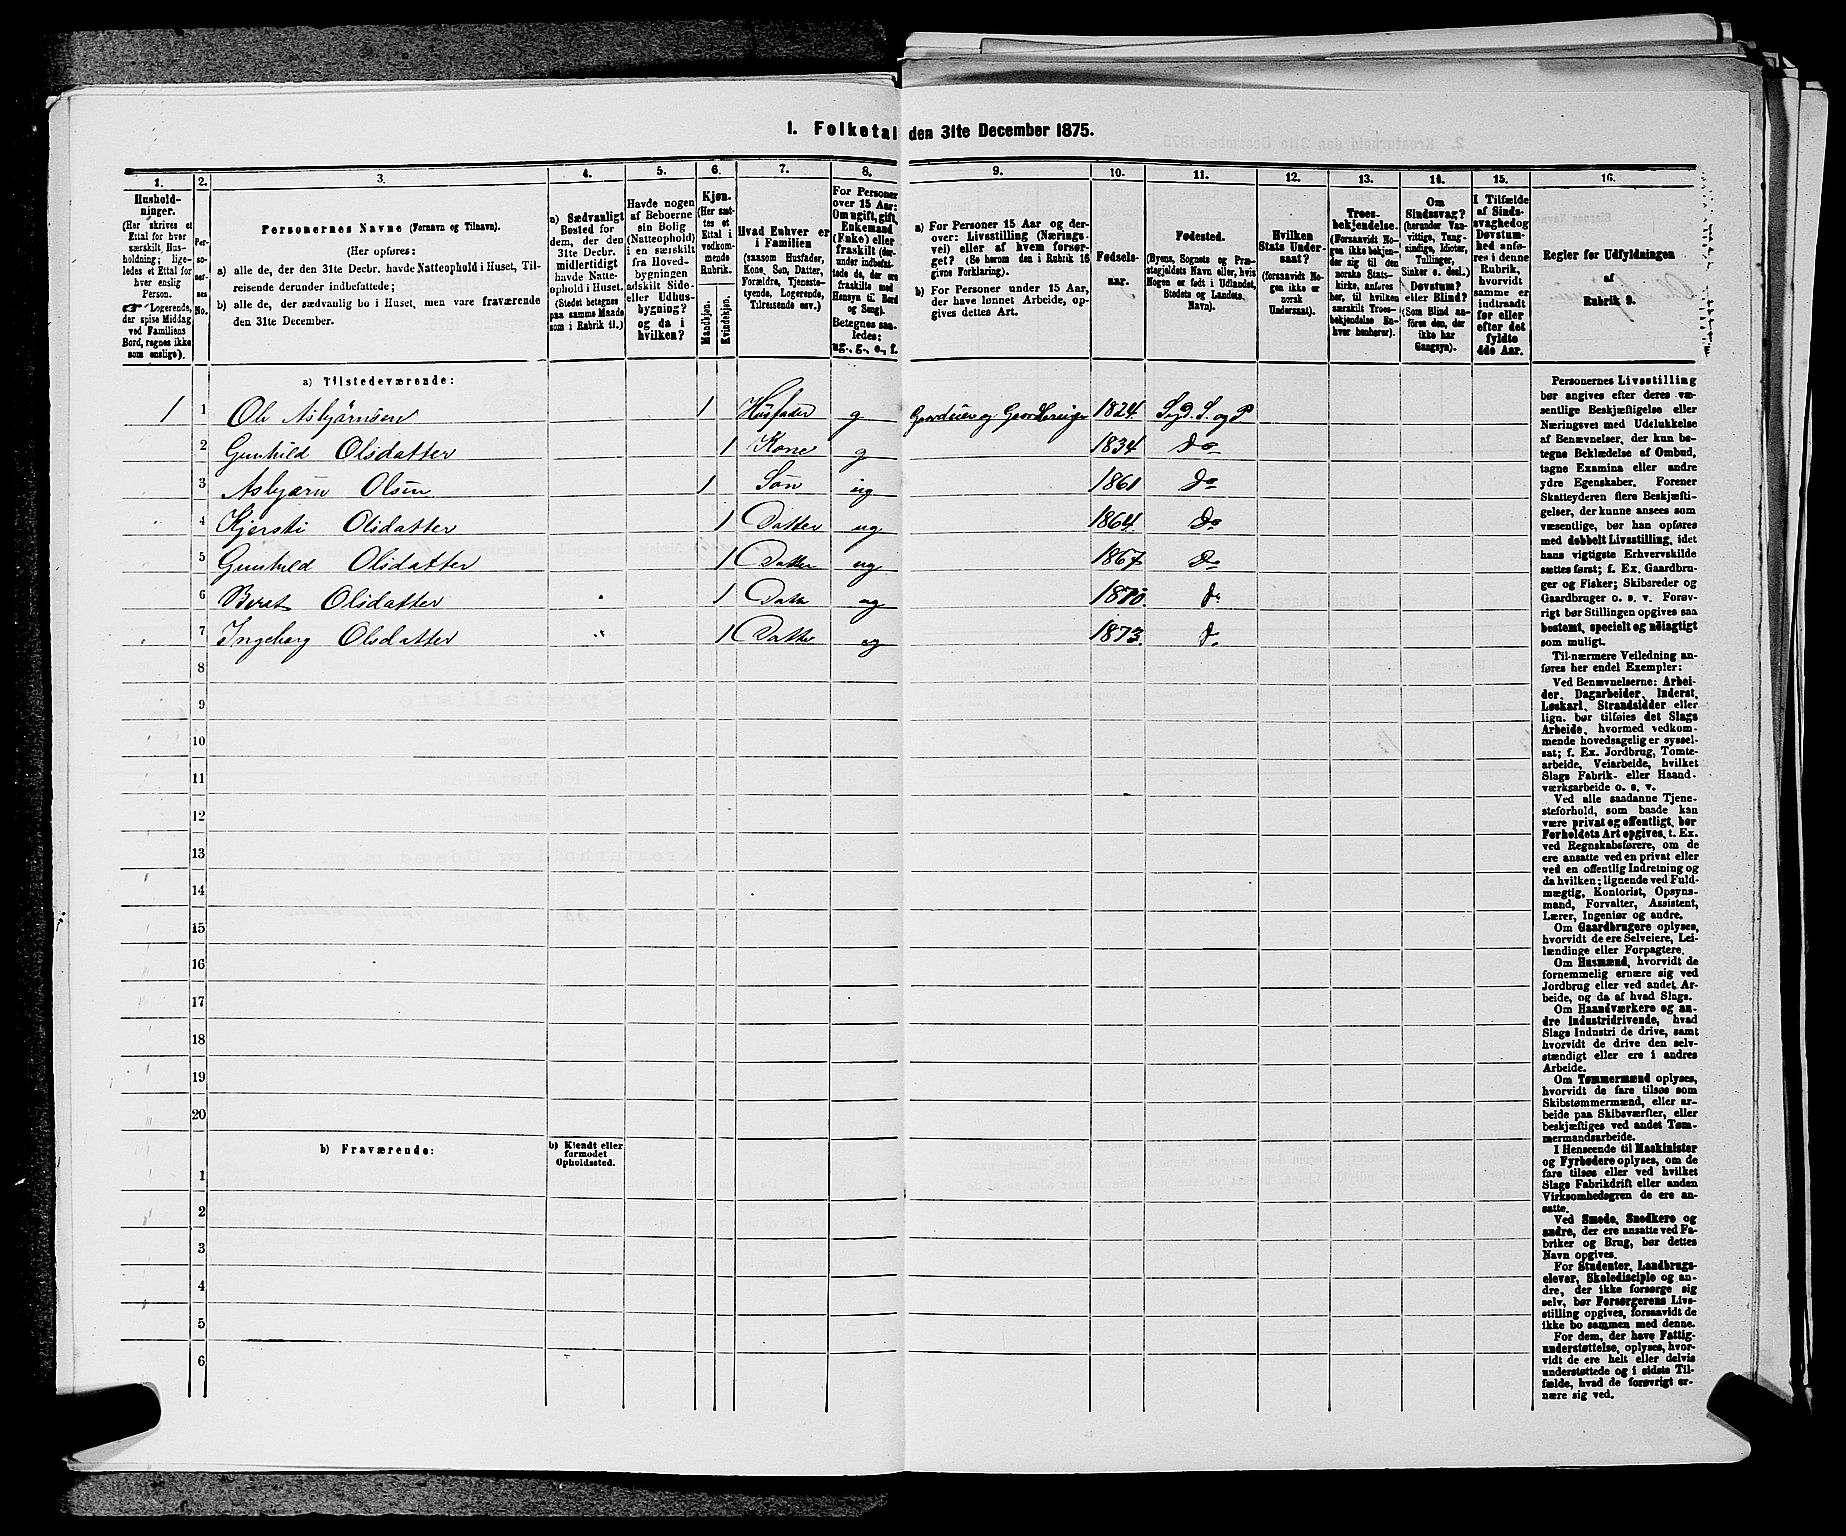 1. Folketal den 31te December 1875.
1. 2. 3. 4. 5. 6. 7. 8. 9. 10. 11. 12. 13. 14. 15. 16.
Hushold-
ninger.
(Her skrives et
Ettal for hver
særskilt Hus-
holdning; lige-
ledes et Ettal for
hver enslig
Person.
☞ Logerende,
der spise Middag
ved Familiens
Bord, regnes ikke
som enslige).
Per-
so-
ner-
nes
No.
Personernes Navne (Fornavn og Tilnavn).
(Her opføres:
a) alle de, der den 31te Decbr. havde Natteophold i Huset, Til-
reisende derunder indbefattede;
b) alle de, der sædvanlig bo i Huset, men vare fraværende
den 31te December.
a) Sædvanligt
Bosted for
dem, der den
31te Decbr.
midlertidigt
havde Natte-
ophold i Huset.
(Stedet betegnes
paa samme Maade
som i Rubrik 11.)
Havde nogen
af Beboerne
sin Bolig
(Natteophold)
i en særskilt
fra Hoved-
bygningen
adskilt Side-
eller Udhus-
bygning?
og da i
hvilken?
Kjøn.
(Her sæt-
tes et
Ettal i
vedkom-
mende
Rubrik.
Mandkjøn.
Kvindekjøn.
Hvad Enhver er
i Familien
(saasom Husfader,
Kone, Søn, Datter,
Forældre, Tjeneste-
tyende, Logerende,
Tilreisende osv.)
For Personer
over 15 Aar:
Om ugift, gift,
Enkemand
(Enke) eller
fraskilt (der-
under indbefat-
tede de, der ere
fraskilte med
Hensyn til Bord
og Seng).
Betegnes saa-
ledes:
ug., g., e., f.
a) For Personer 15 Aar og der-
over: Livsstilling (Nærings-
vei) eller af hvem forsør-
get? (Se herom den i Rubrik 16
givne Forklaring).
b) For Personer under 15 Aar,
der have lønnet Arbeide, op-
gives dettes Art.
Fødsels-
aar.
Fødested.
(Byens, Sognets og Præ-
stegjeldets Navn eller, hvis
Nogen er født i Udlandet,
Stedets og Landets
Navn).
Hvilken
Stats Under-
saat?
(forsaavidt No-
gen ikke er
norsk
Undersaat).
Troes-
bekjendelse.
(Forsaavidt No-
gen ikke bekjen-
der sig til den
norske Stats-
kirke, anføres
her, til hvilken
særskilt Troes-
bekjendelse En-
hver henhører).
Om
Sindssvag?
(herunder Van-
vittige, Tung-
sindige, Idioter,
Tullinger,
Sinker o. desl.)
Døvstum?
eller Blind?
(Som Blind an-
føres den, der
ikke har
Gangsyn).
I Tilfælde
af Sinds-
svaghed og
Døvstum-
hed anfø-
res i denne
Rubrik,
hvorvidt
samme er
indtraadt
før eller
efter det
fyldte
4de Aar.
Regler for Udfyldningen
af
Rubrik 9.
a) Tilstedeværende:
1 1 Ole Asbjørnsen 1 Husfader g Gaardeier og Gaardbruger 1824. S. og P
2 Gunhild Olsdatter 1 Kone g 1834 Do
3 Asbjørn Olsen 1 Søn ug 1861 Do
4 Kjersti Olsdatter 1 Datter ug 1864. Do
5 Gunhild Olsdatter 1 Datter ug 1867 Do
6 Beret Olsdatter 1 Datter ug 1870. Do
7 Ingeborg Olsdatter 1 Datter ug 1873. Do
8
9
10
11
12
13
14
15
16
17
18
19
20
b) Fraværende:
b) Kjendt eller
formodet
Opholdssted.
1
2
3
4
5
6
Personernes Livsstilling
bør angives efter deres væ-
sentlige Beskjæftigelse eller
Næringsvei med Udelukkelse
af Benævnelser, der kun be-
tegne Beklædelse af Ombud,
tagne Examina eller andre
ydre Egenskaber. Forener
Skatteyderen flere Beskjæfti-
gelser, der kunne ansees som
væsentlige, bør han opføres
med dobbelt Livsstilling, idet
hans vigtigste Erhvervskilde
sættes først; f. Ex. Gaardbru-
ger og Fisker; Skibsreder og
Gaardbruger o. s. v. Forøv-
rigt bør Stillingen opgives saa
bestemt, specielt og nøiagtigt
som muligt.
Til nærmere Veiledning an-
føres her endel Exempler:
Ved Benævnelserne: Arbei-
der, Dagarbeider, Inderst,
Løskarl, Strandsidder eller
lign. bør tilføies det Slags
Arbeide, hvormed vedkom-
mende hovedsagelig er syssel-
sat; f. Ex. Jordbrug, Tomte-
arbeide, Veiarbeide, hvilket
Slags Fabrik- eller Haand-
værksarbeide o. s. v.
Ved alle saadanne Tjene-
steforhold, som baade kan
være privat og offentligt, bør
Forholdets Art opgives, t. Ex.
ved Regnskabsførere, om de
ere ansatte ved en privat eller
ved en offentlig Indretning og
da hvilken; lignende ved Fuld-
mægtig, Kontorist, Opsyns-
mand, Forvalter, Assistent,
Lærer, Ingeniør og andre.
Om Gaardbrugere oplyses,
hvorvidt de ere Selveiere, Lei-
lændinge eller Forpagtere.
Om Husmænd, hvorvidt de
fornemmelig ernære sig ved
Jordbrug eller ved andet Ar-
beide, og da af hvad Slags.
Om Haandværkere og an-
dre Industridrivende, hvad
Slags Industri de drive, samt
hvorvidt de drive den selv-
stændigt eller ere i andres
Arbeide.
Om Tømmermænd oplyses,
hvorvidt de fare tilsøs som
Skibstømmermænd, eller ar-
beide paa Skibsværfter, eller
beskjæftiges ved andet Tøm-
mermandsarbeide.
I Henseende til Maskinister
og Fyrbødere oplyses, om de
fare tilsøs eller ved hvilket
Slags Fabrikdrift eller anden
Virksomhedsgren de ere an-
satte.
Ved Smede, Snedkere og
andre, der ere ansatte ved Fa-
briker og Brug, bør dettes
Navn opgives.
For Studenter, Landbrugs-
elever, Skoledisciple og an-
dre, der ikke forsørge sig
selv, bør Forsørgerens Livs-
stilling opgives, forsaavidt de
ikke bo sammen med denne.
For dem, der have Fattig-
understøttelse, oplyses, hvor-
vidt de ere helt eller delvis
understøttede og i sidste Til-
fælde, hvad de forøvrigt er-
nære sig ved.